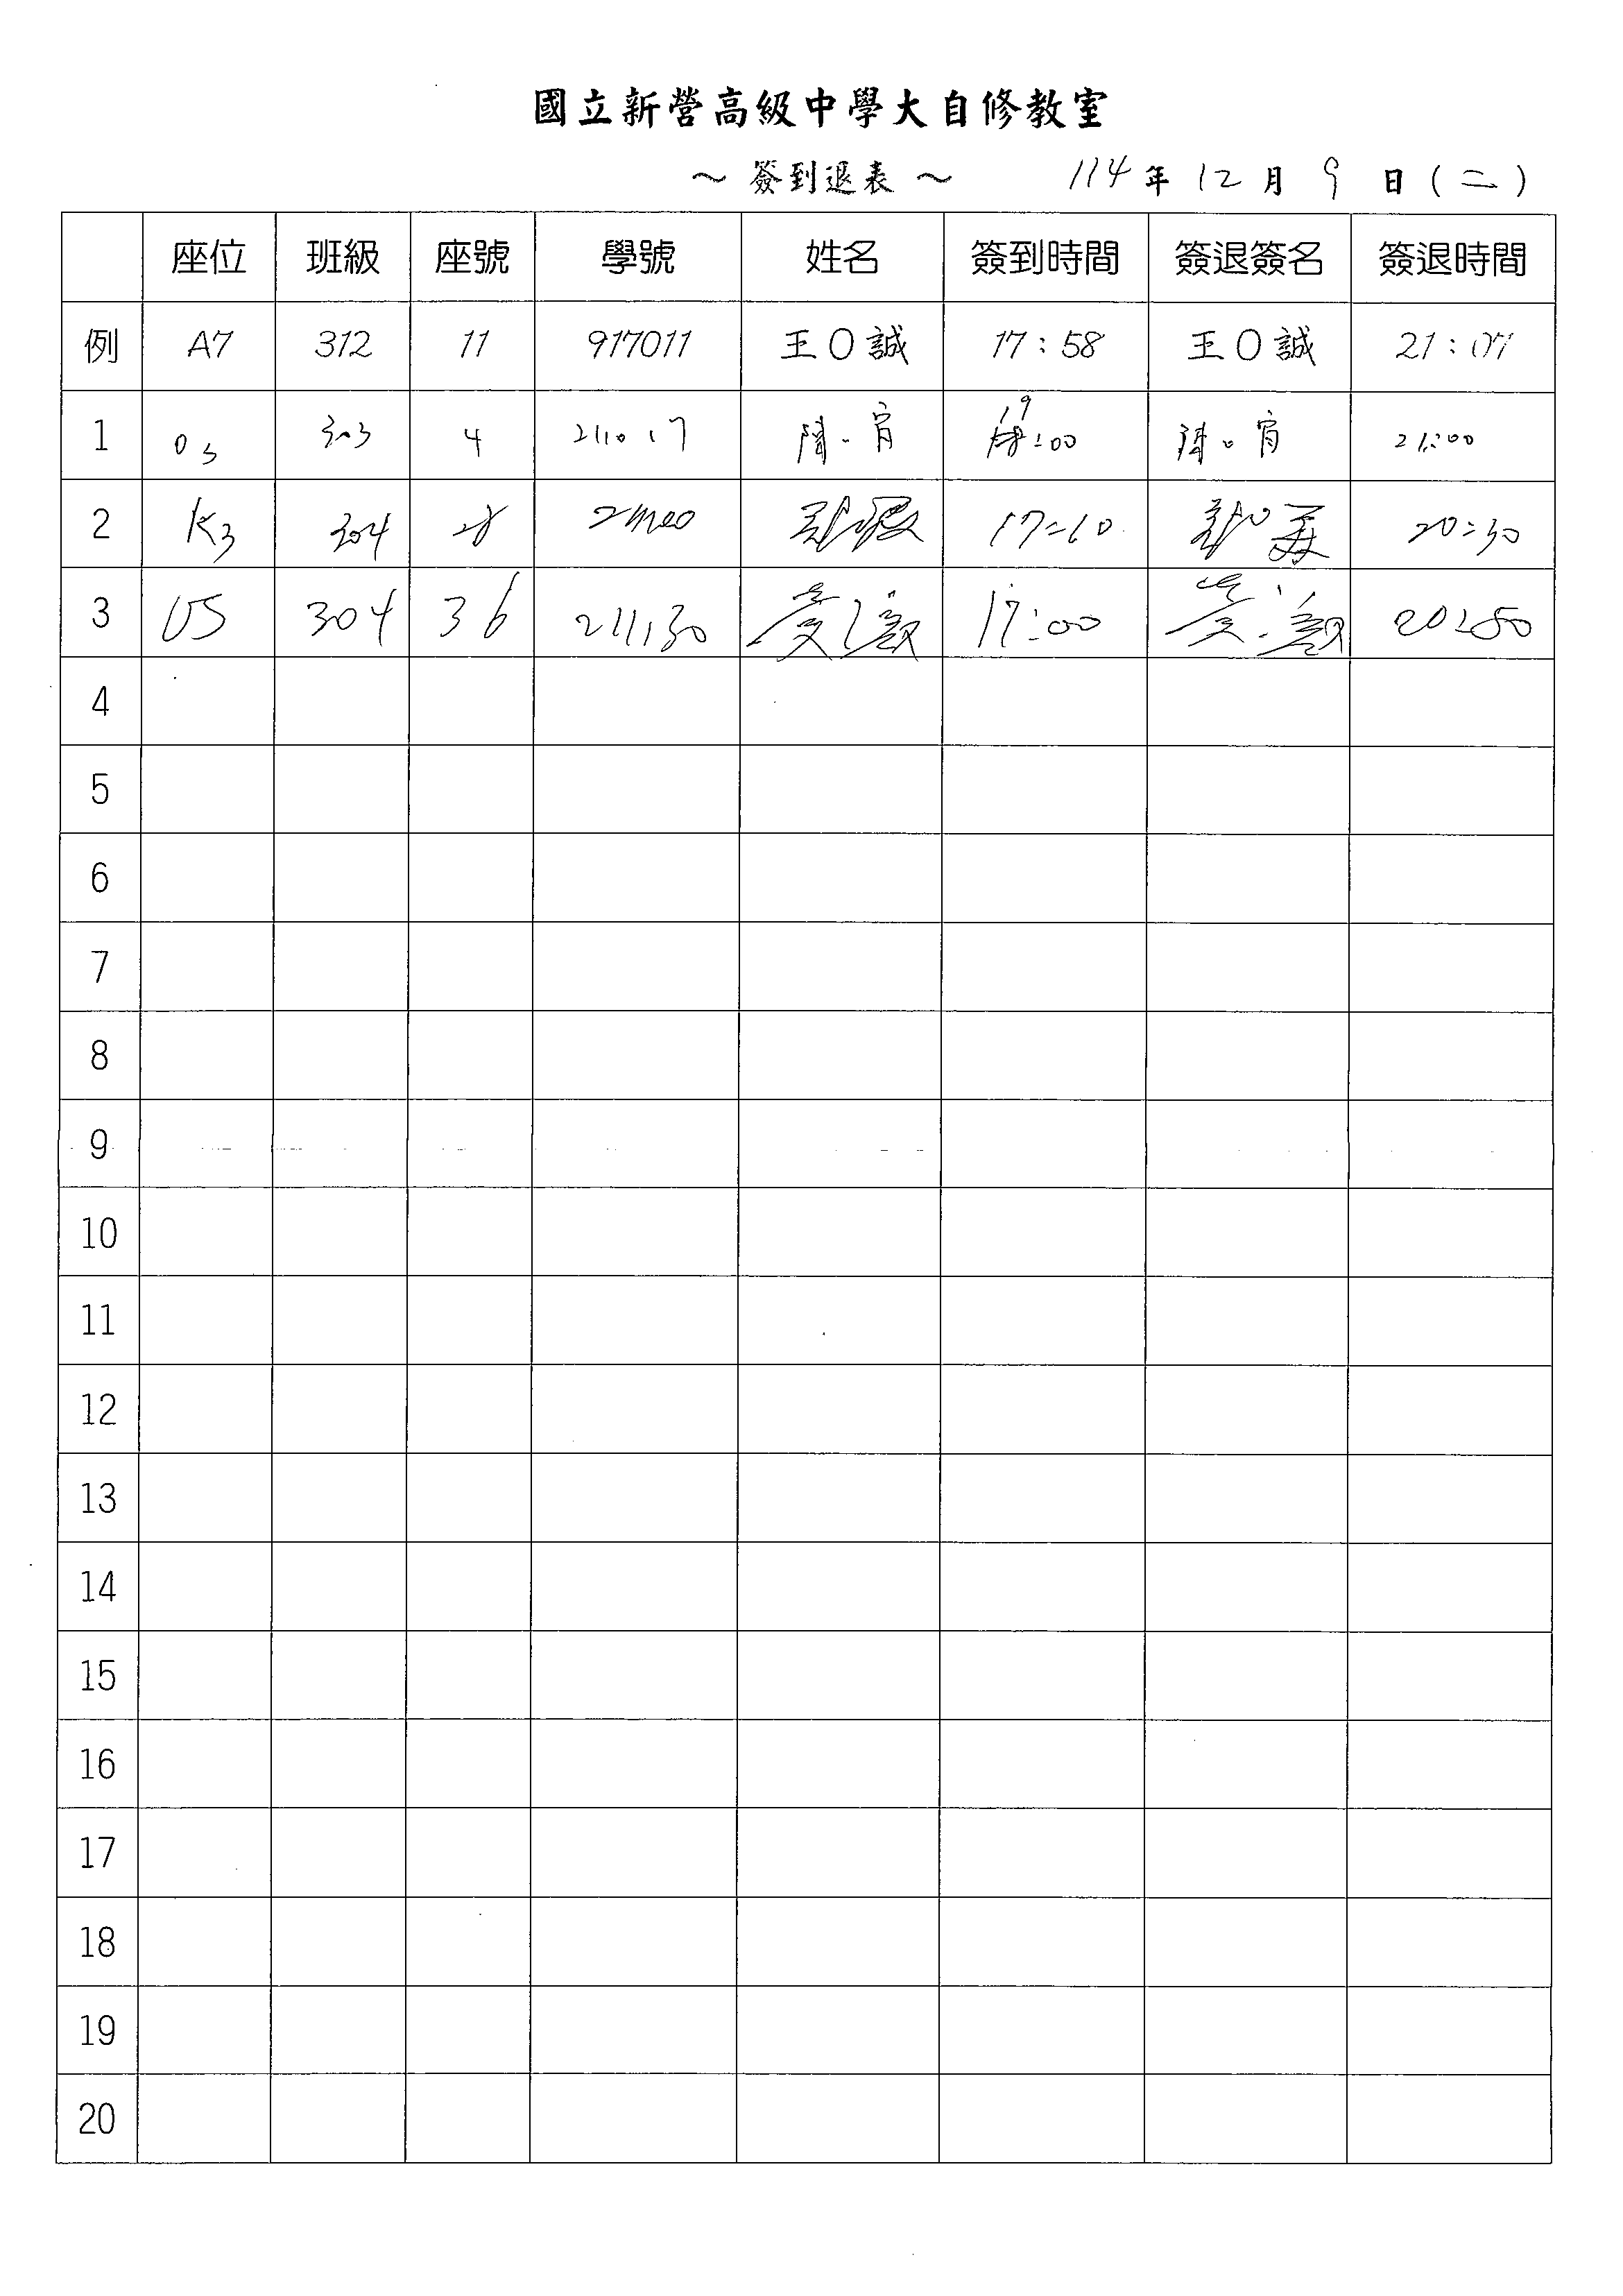 國立新營高級中學大自修教室
～ 簽到退表 ～ 114 年 12 月 9 日 (二)
座位 班級 座號 學號 姓名 簽到時間 簽退簽名 簽退時間
例 A7 312 11 917011 王O誠 17:58 王O誠 21:07
1 03 303 4 211017 陳o宥 19:00 陳o宥 21:00
2 K3 304 28 17:10 20:30
3 U5 304 36 211130 17:00 20:50
4
5
6
7
8
9
10
11
12
13
14
15
16
17
18
19
20